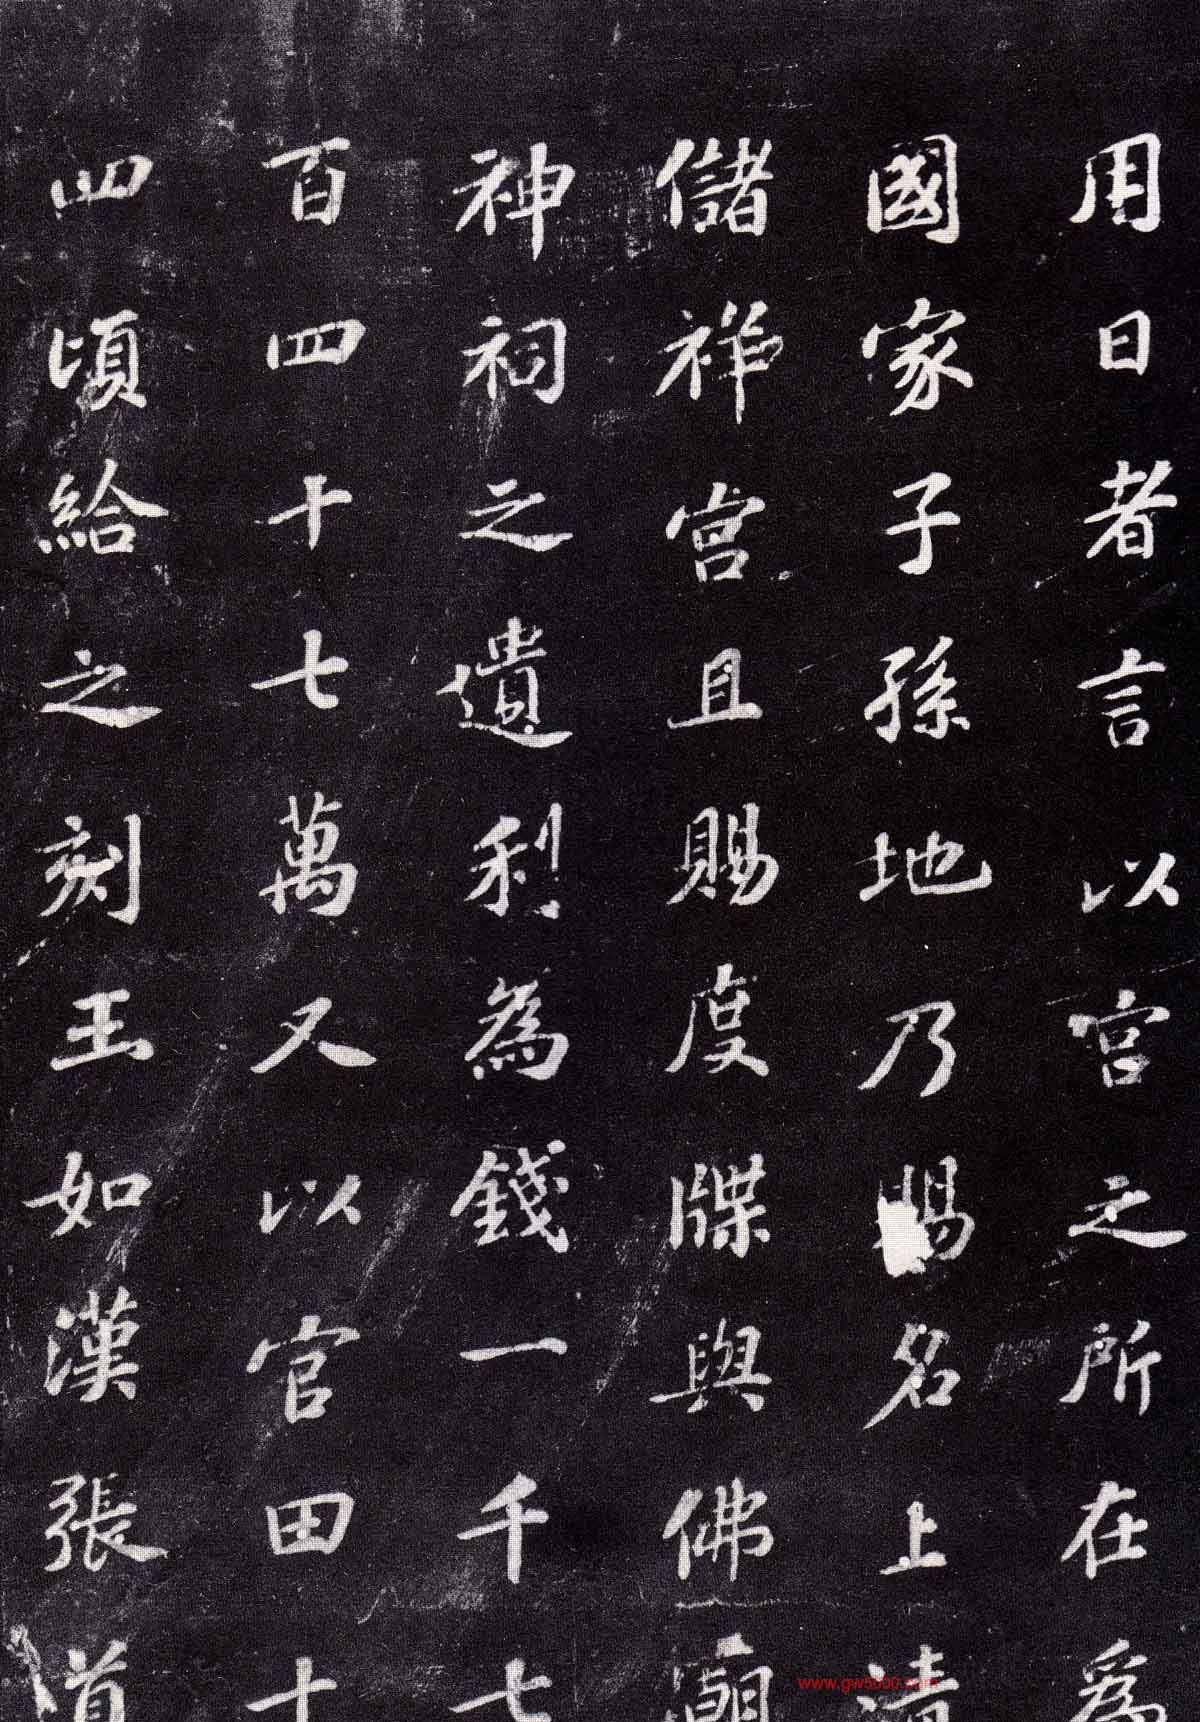 用日者言以宮之所在爲
國家子孫地乃賜名上清
儲祥宮且賜度牒與佛廟
神祠之遺利為錢一千七
百四十七萬又以官田十
四頃給之刻玉如漢張道
www.gw5000.com